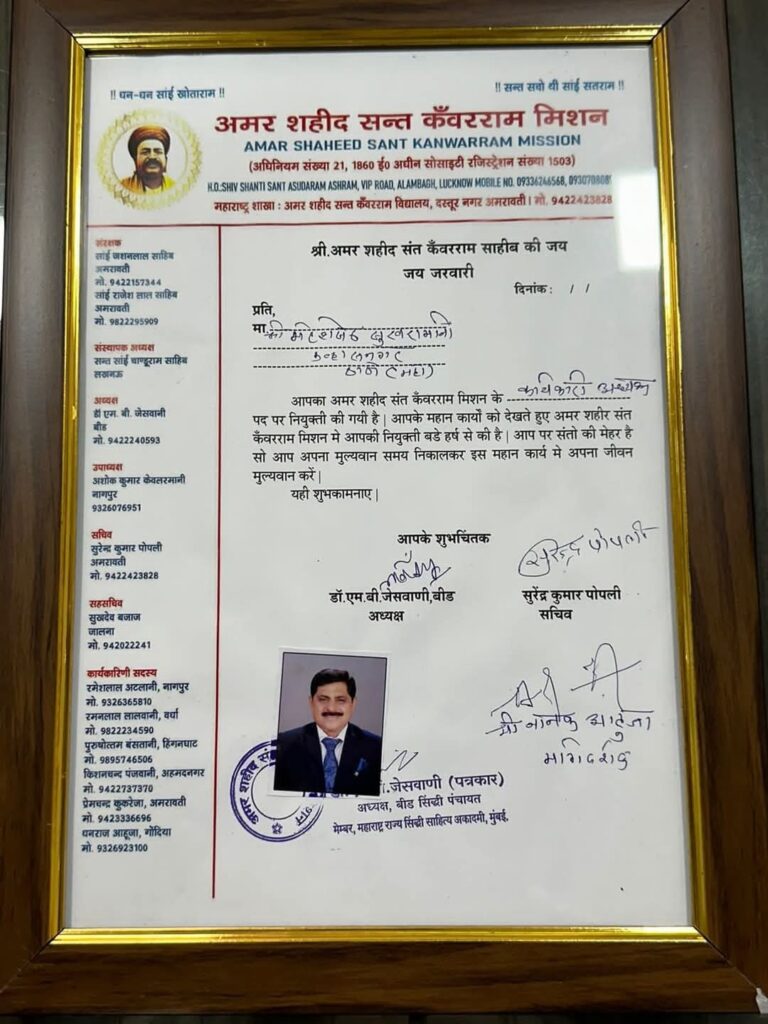 !! धन-धन सांई खोताराम !!
!! सन्त सबो थी सांई सतराम !!
अमर शहीद सन्त कँवरराम मिशन
AMAR SHAHEED SANT KANWARRAM MISSION
(अधिनियम संख्या 21, 1860 ई० अधीन सोसाइटी रजिस्ट्रेशन संख्या 1503)
H.O.:SHIV SHANTI SANT ASUDARAM ASHRAM, VIP ROAD, ALAMBAGH, LUCKNOW MOBILE NO. 09336246568,
महाराष्ट्र शाखा : अमर शहीद सन्त कँवरराम विद्यालय, दस्तूर नगर अमरावती। मो. 9422423828
संरक्षक
सांई जशनलाल साहिब
अमरावती
मो. 9422157344
सांई राजेश लाल साहिब
अमरावती
मो. 9822295909
संस्थापक अध्यक्ष
सन्त सांई चाण्डूराम साहिब
लखनऊ
अध्यक्ष
डॉ एम. बी. जेसवानी
बीड
मो. 9422240593
उपाध्यक्ष
अशोक कुमार केवलरमानी
नागपुर
9326076951
सचिव
सुरेन्द कुमार पोपली
अमरावती
मो. 9422423828
सहसचिव
सुखदेव बजाज
जालना
मो. 942022241
कार्यकारिणी सदस्य
रमेशलाल अटलानी, नागपुर
मो. 9326365810
रमनलाल लालवानी, वर्धा
मो. 9822234590
पुरुषोत्तम बंसतानी, हिंगनघाट
मो. 9895746506
किशनचन्द पंजवानी, अहमदनगर
मो. 9422737370
प्रेमचन्द्र कुकरेजा, अमरावती
मो. 9423336696
धनराज आहूजा, गोंदिया
मो. 9326923100
श्री.अमर शहीद संत कँवरराम साहीब की जय
जय जरवारी
दिनांक : / /
प्रति,
मा. श्री सुखरामानी
ठाणे (महा)
आपका अमर शहीद संत कँवरराम मिशन के कार्यकारी अध्यक्ष
पद पर नियुक्ती की गयी है | आपके महान कार्यो को देखते हुए अमर शहीर संत
कँवरराम मिशन मे आपकी नियुक्ती बडे हर्ष से की है | आप पर संतो की मेहर है
सो आप अपना मुल्यवान समय निकालकर इस महान कार्य मे अपना जीवन
मुल्यवान करें |
यही शुभकामनाए |
आपके शुभचिंतक
सुरेन्द्र पोपली
डॉ.एम.बी.जेसवाणी,बीड
अध्यक्ष
सुरेंद्र कुमार पोपली
सचिव
श्री नानक आहुजा
मार्गदर्शक
.जेसवाणी (पत्रकार)
अध्यक्ष, बीड सिंधी पंचायत
मेम्बर, महाराष्ट्र राज्य सिंधी साहित्य अकादमी, मुंबई.
अमर शहीद